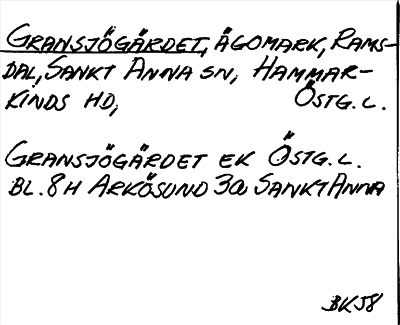 GRANSJÖGÄRDET, ÄGOMARK, RAMS-
DAL, SANKT ANNA SN, HAMMAR-
KINDS HD, ÖSTG. L.
GRANSJÖGÄRDET EK ÖSTG. L.
BL. 8H ARKÖSUND 3a SANKT ANNA
BKJ8